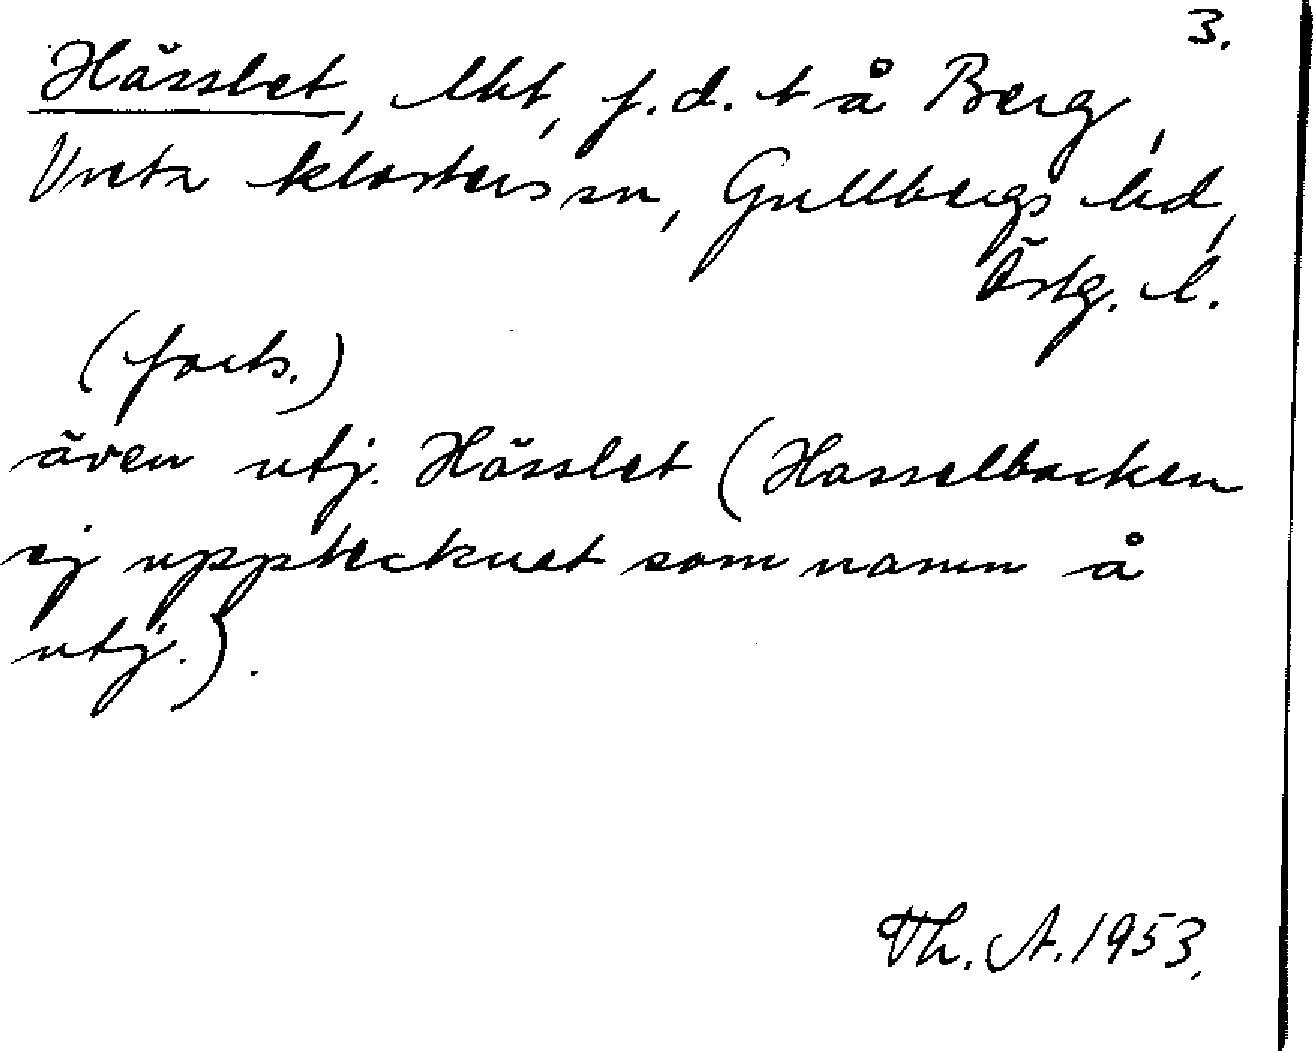 3.
Hässlet, lht, f.d. t å Berg,
Vreta klosters sn, Gullbergs hd,
Östg. l.
(forts.)
även utj. Hässlet (Hasselbacken
ej upptecknat som namn å
utj.).
Th. A. 1953.